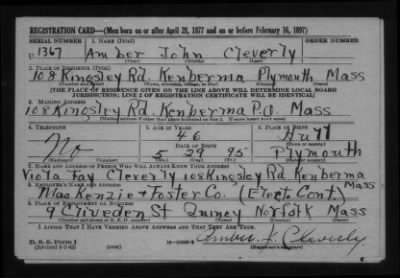 REGISTRATION CARD—(Men born on or after April 28, 1877 and on or before February 16, 1897)
SERIAL NUMBER 1. NAME (Print) ORDER NUMBER
U 1367 Amber John Cleverly
2. PLACE OF RESIDENCE (Print)
108 Kingsley Rd. Kenberma Plymouth Mass
[THE PLACE OF RESIDENCE GIVEN ON THE LINE ABOVE WILL DETERMINE LOCAL BOARD
JURISDICTION; LINE 2 OF REGISTRATION CERTIFICATE WILL BE IDENTICAL]
3. MAILING ADDRESS
108 Kingsley Rd. Kenberma P.O. Mass
[Mailing address if other than place indicated on line 2. If same insert word same]
4. TELEPHONE 5. AGE IN YEARS 6. PLACE OF BIRTH
46 Hull
DATE OF BIRTH
No 5 29 95 Plymouth
7. NAME AND ADDRESS OF PERSON WHO WILL ALWAYS KNOW YOUR ADDRESS
Viola Fay Cleverly 108 Kingsley Rd Kenberma
Mass
8. EMPLOYER'S NAME AND ADDRESS
MacKenzie + Foster Co. (Elect. Cont.)
9. PLACE OF EMPLOYMENT OR BUSINESS
9 Cliveden St Quincy Norfolk Mass
I AFFIRM THAT I HAVE VERIFIED ABOVE ANSWERS AND THAT THEY ARE TRUE.
D. S. S. Form 1
Amber J. Cleverly